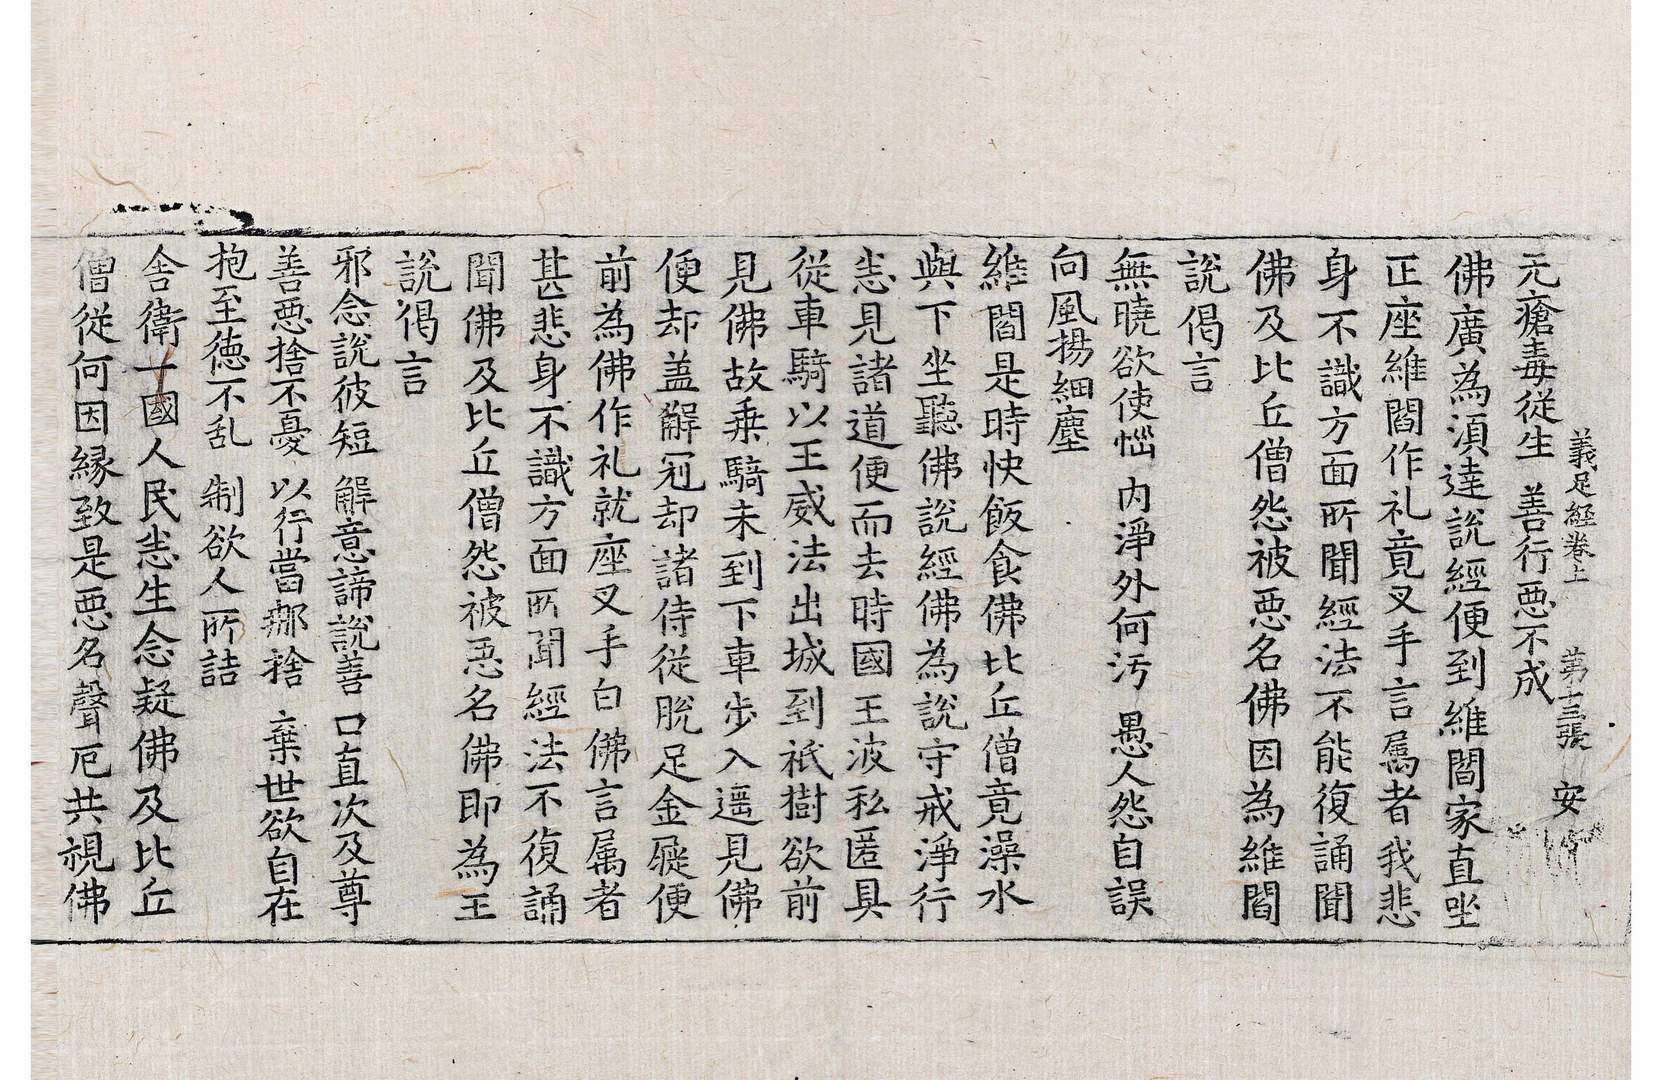 義足經卷上　第十三張　安
无瘡毒從生　善行惡不成
佛廣為湏達說經便到維閻家直坐
正座維閻作礼竟叉手言属者我悲
身不識方面所聞經法不能復誦聞
佛及比丘僧怨被惡名佛因為維閻
說偈言
無曉欲使惱　內淨外何污　愚人怨自誤
向風揚細塵
維閻是時快飯食佛比丘僧竟澡水
與下坐聽佛說經佛為說守戒淨行
悉見諸道便而去時國王波私匿具
從車騎以王威法出城到祇樹欲前
見佛故乗騎未到下車步入遥見佛
便却盖解冠却諸侍從脫足金屣便
前為佛作礼就座叉手白佛言属者
甚悲身不識方面所聞經法不復誦
聞佛及比丘僧怨被惡名佛即為王
說偈言
邪念說彼短　解意諦說善　口直次及尊
善惡捨不憂　以行當那捨　棄世欲自在
抱至德不乱　制欲人所詰
舍衛一國人民悉生念疑佛及比丘
僧從何因緣致是惡名聲厄共視佛